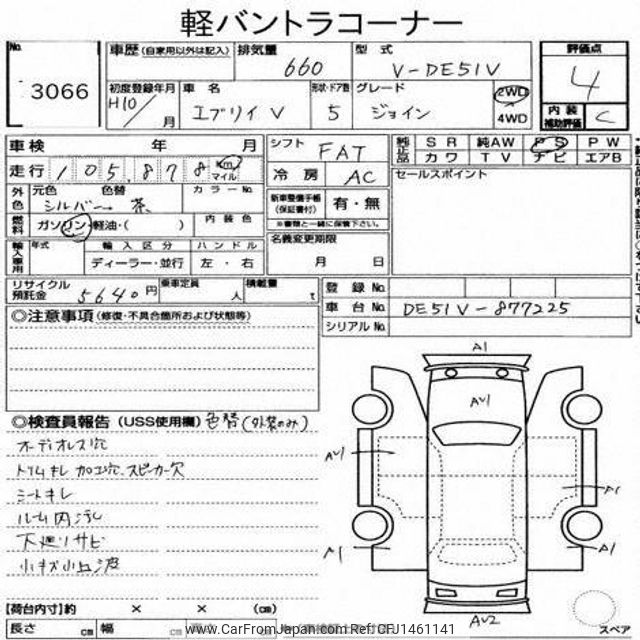 軽バントラコーナー
No.
3066
車歴 (自家用以外は記入)
排気量 660
型式 V-DE51V
評価点 4
内装補助評価 C
初度登録年月 H10/ 月
車名 エブリイV
形状・ドア数 5
グレード ジョイン
2WD
4WD
車検 年 月
走行 105,878 km マイル
シフト FAT
冷房 AC
純正品 SR 純AW PS PW
カワ TV ナビ エアB
セールスポイント
外色 元色 色替 カラーNo.
シルバー → 茶
燃料 ガソリン・軽油・( ) 内装色
新車整備手帳 (保証書付) 有・無
※書類と一緒に保管下さい。
輸入車専用 年式 輸入区分 ハンドル
ディーラー・並行 左・右
名義変更期限
月 日
リサイクル預託金 5640円
乗車定員 人
積載量 t
登録No.
車台No. DE51V-877225
シリアルNo.
◎注意事項 (修復・不具合箇所および状態等)
◎検査員報告 (USS使用欄) 色替(外装のみ)
オーディオレス穴
トリムキレ 加工穴、スピーカー欠
シートキレ
ルーム内汚レ
下廻リサビ
小キズ小凹波
A1
AU1
AU1
A1
A1
A1
AU2
スペア
【荷台内寸】約 × × (cm)
長さ cm 幅 cm 高さ
www.CarFromJapan.com Ref:CFJ1461141